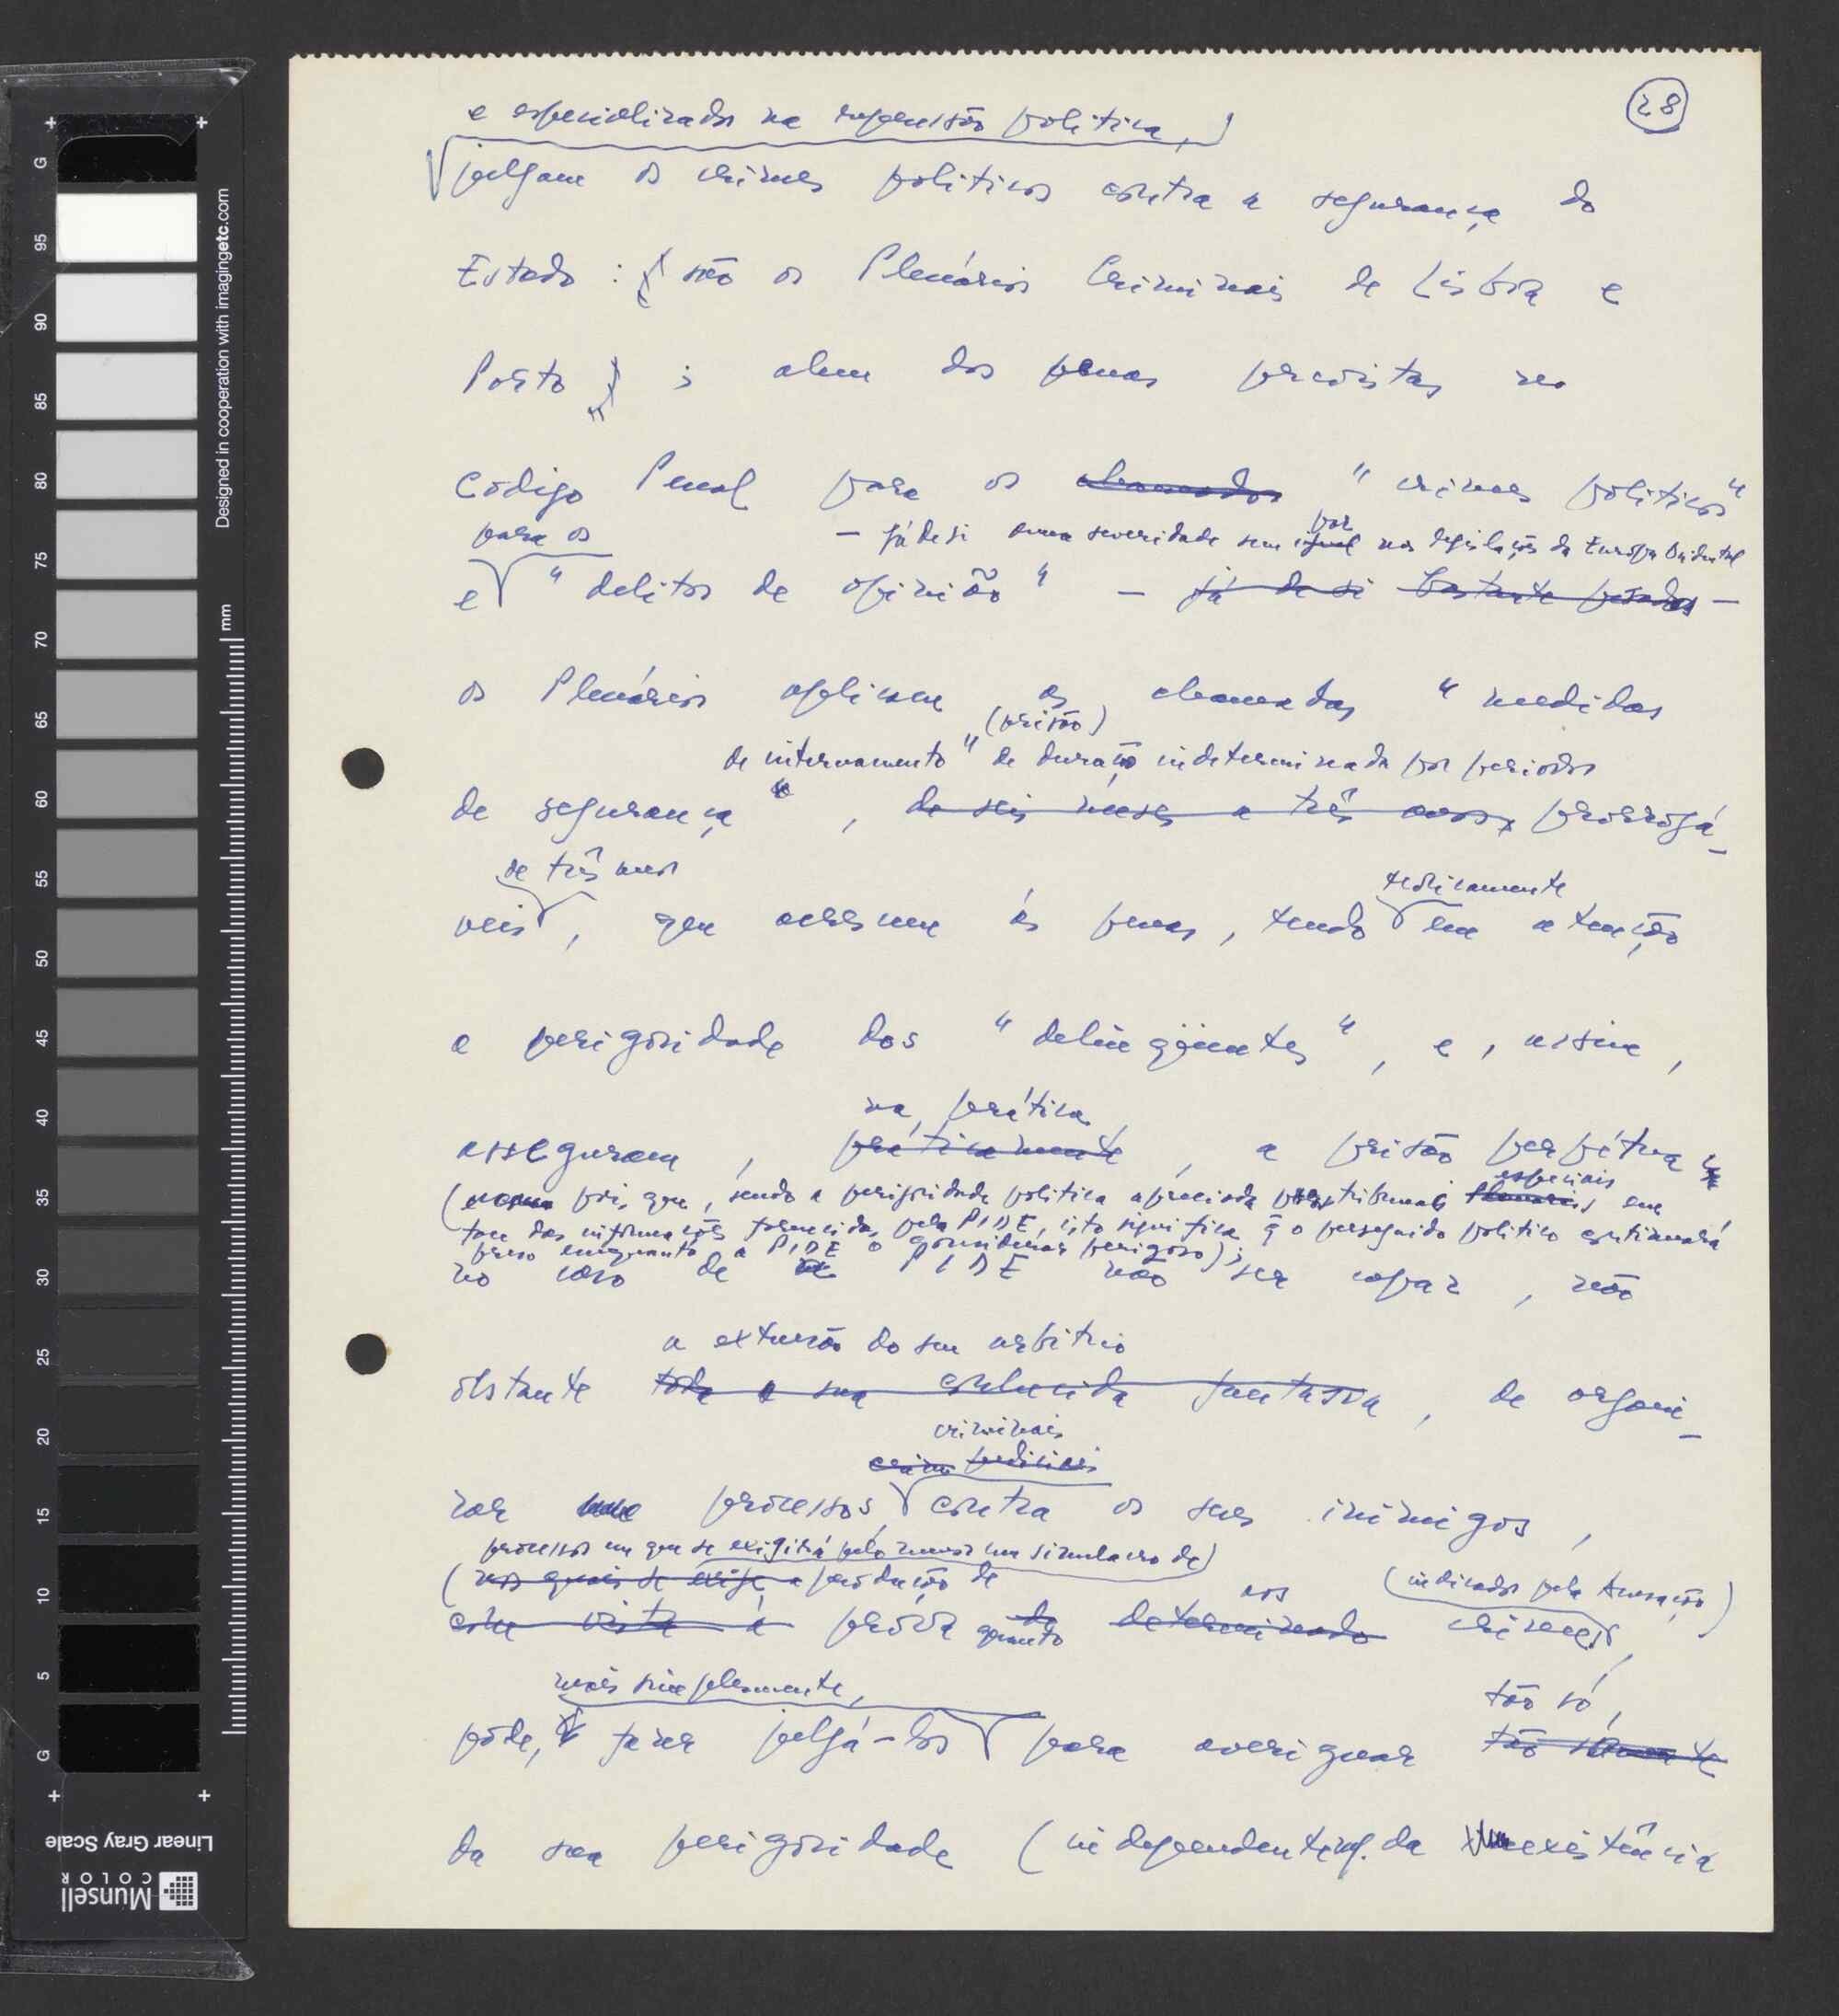 28
e especializados na repressão política,
julgam os crimes políticos contra a segurança do
Estado : são os Plenários Criminais de Lisboa e
Porto ; alem das penas previstas no
Código Penal para os chamados "crimes políticos"
para os
— já de si duma severidade sem igual par nas legislações da Europa Ocidental
e "delitos de opinião" — já de si bastante pesadas —
os Plenários aplicam as chamadas "medidas
(prisão)
de internamento" de duração indeterminada por periodos
de segurança", de seis meses a três anos, prorrogá-
de três anos
teoricamente
veis, que acrescem às penas, tendo em atenção
a perigosidade dos "delinqüentes", e, assim,
na prática
asseguram, praticamente, a prisão perpétua
especiais
( pois que, sendo a perigosidade política apreciada pelos tribunais plenários em
face das informações fornecidas pela PIDE, isto significa q̃ o perseguido político continuará
preso enquanto a PIDE o considerar perigoso);
no caso de a PIDE não ser capaz, não
a extensão do seu arbítrio
obstante toda a sua conhecida fantasia, de organi-
criminais
crime judiciais
zar processos contra os seus inimigos,
processos em que se exigirá pelo menos um simulacro de
(nos quais se exige a produção de
aos
(indicados pela Acusação)
com vista à prova quanto de determinado crimes,
mais simplesmente,
tão só,
póde, fazer julgá-los para averiguar tão sómente
da sua perigosidade (independentem. da existência
Designed in cooperation with imagingetc.com
mm
G
95
90
85
80
75
70
65
60
55
50
45
40
35
30
25
20
15
10
5
G
Linear Gray Scale
Munsell
COLOR